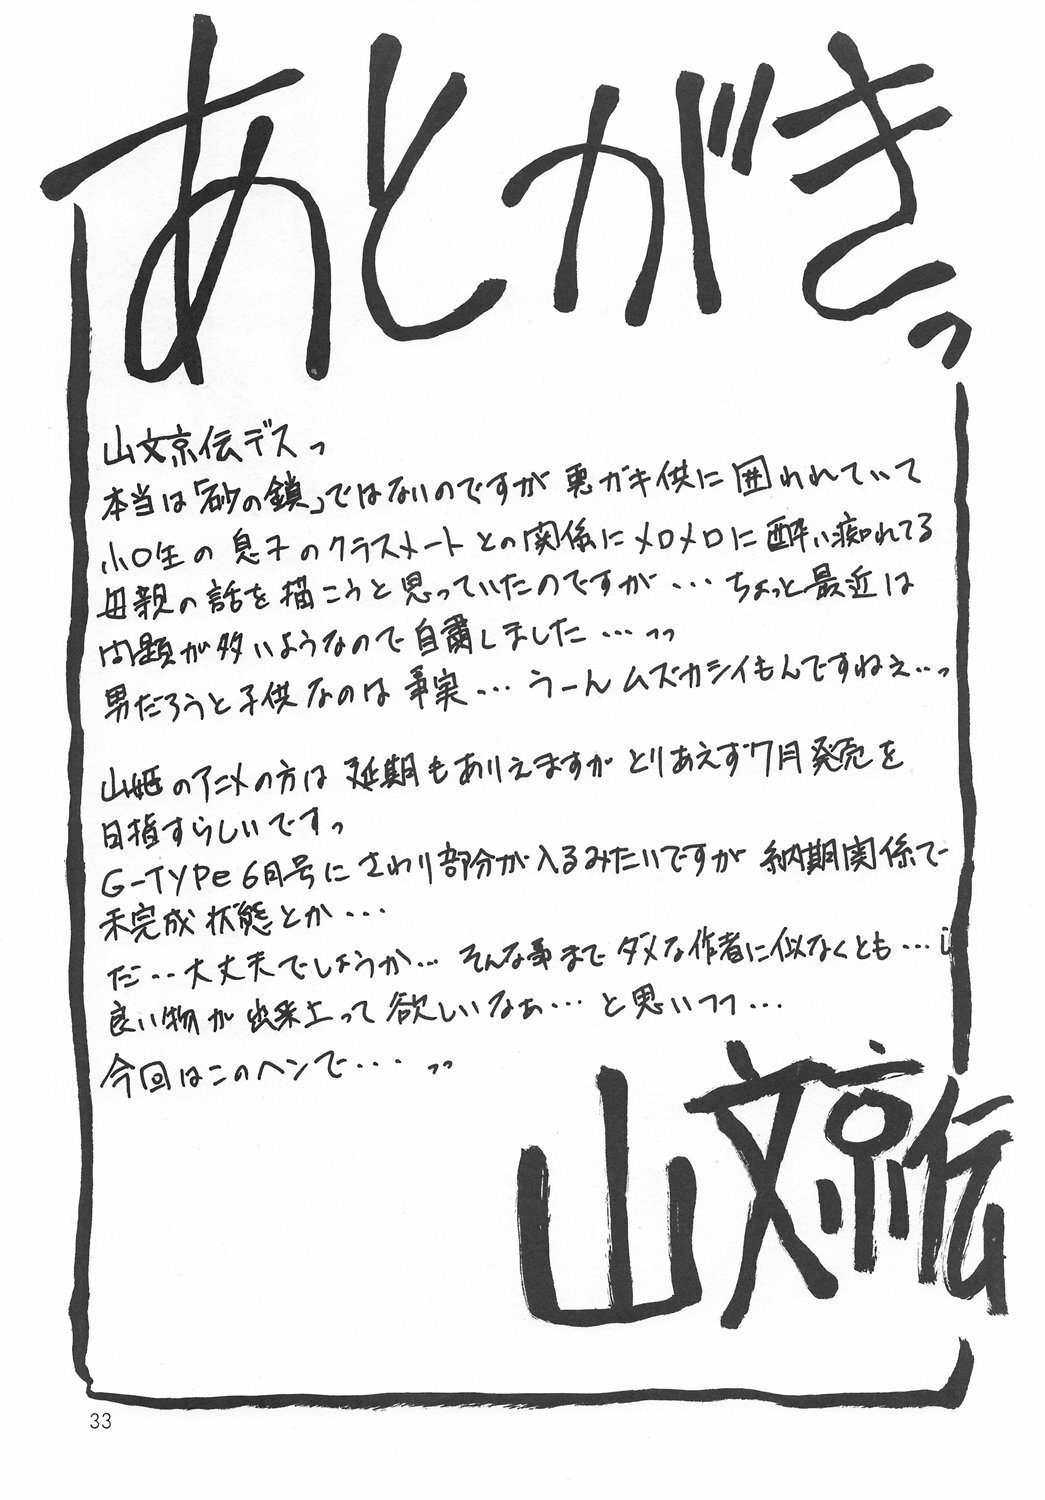 あとがきっ
山文京伝デスっ
本当は「砂の鎖」ではないのですが悪ガキ供に囲われていて
小○生の息子のクラスメートとの関係にメロメロに酔い痴れてる
母親の話を描こうと思っていたのですが・・・ちょっと最近は
問題が多いようなので自粛しました・・・っっ
男だろうと子供なのは事実・・・うーんムズカシイもんですねえ・・っ
山姫のアニメの方は延期もありえますがとりあえず7月発売を
目指すらしいですっ
G-TYPe 6月号にさわり部分が入るみたいですが納期関係で
未完成状態とか・・・
だ・・大丈夫でしょうか・・・そんな事までダメな作者に似なくとも・・・
良い物が出来上って欲しいなぁ・・・と思いつつ・・・
今回はこのヘンで・・・っっ
山文京伝
33